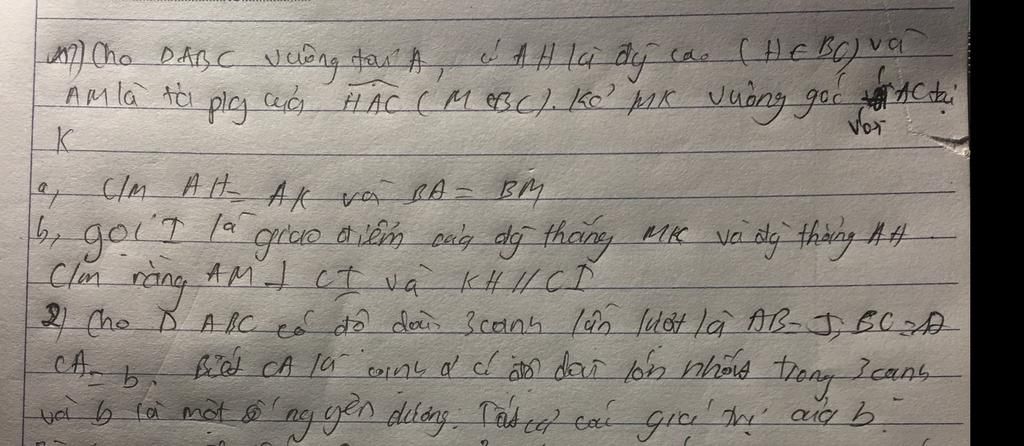 1) Cho DABC vuông tại A, có AH là đg cao (H ∈ BC) và
AM là tia p/g của HAC (M ∈ BC). Kẻ MK vuông góc với AC tại
K
a, C/m AH = AK và BA = BM
b, gọi I là giao điểm của đg thẳng MK và đg thẳng AH
C/m rằng AM ⊥ CI và KH // CI
2) Cho D ABC có độ dài 3 cạnh lần lượt là AB = 5, BC =
CA = b. Biết CA là cạnh có độ dài lớn nhất trong 3 cạnh
và b là một số nguyên dương. Tất cả các giá trị của b